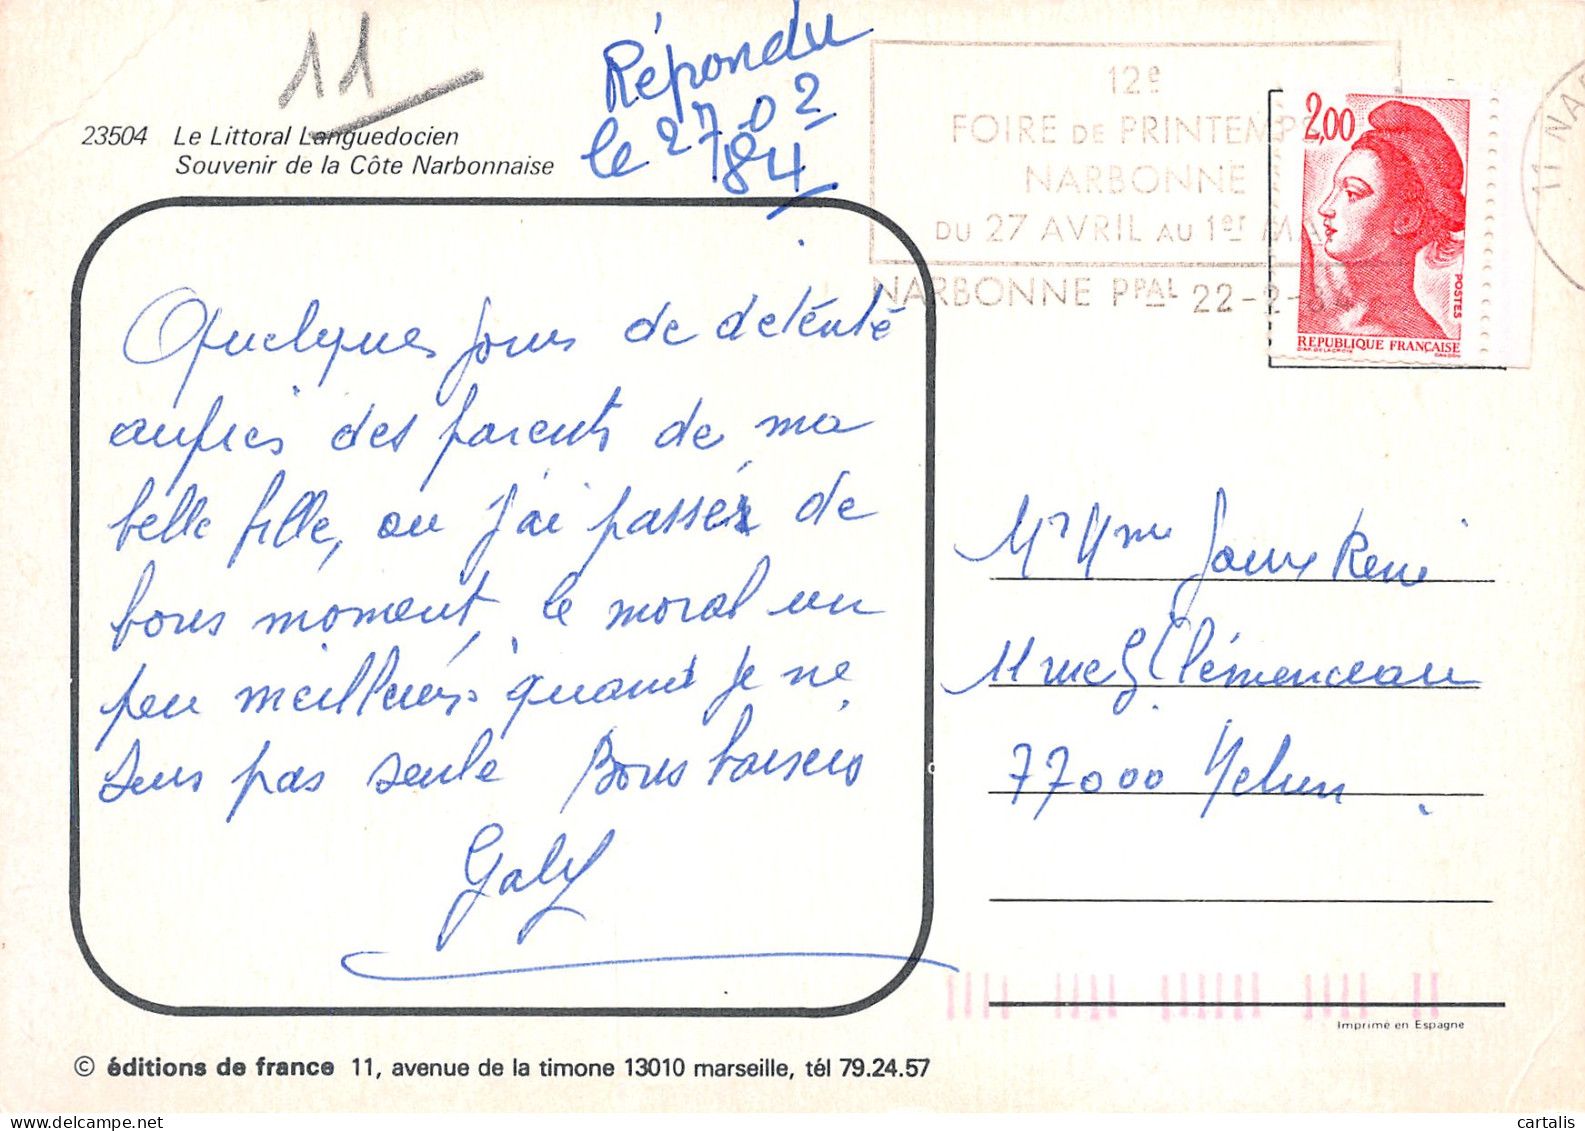 11
23504 Le Littoral Languedocien
Souvenir de la Côte Narbonnaise
Répondu
le 27.02
84
12e
FOIRE DE PRINTEMPS
NARBONNE
DU 27 AVRIL AU 1er MAI
NARBONNE PPAL 22-2-84
11 NAR
2,00
POSTES
REPUBLIQUE FRANÇAISE
D'AP. DELACROIX GANDON
Quelques jours de detenté
auprès des parents de ma
belle fille, ou j'ai passér de
bons moment, le moral un
peu meilleurs quand je ne
sens pas seule Bons baisers
Gaby
Mr Mme René
11 rue G Clémenceau
77000 Melun
Imprimé en Espagne
© éditions de france 11, avenue de la timone 13010 marseille, tél 79.24.57
cartalis